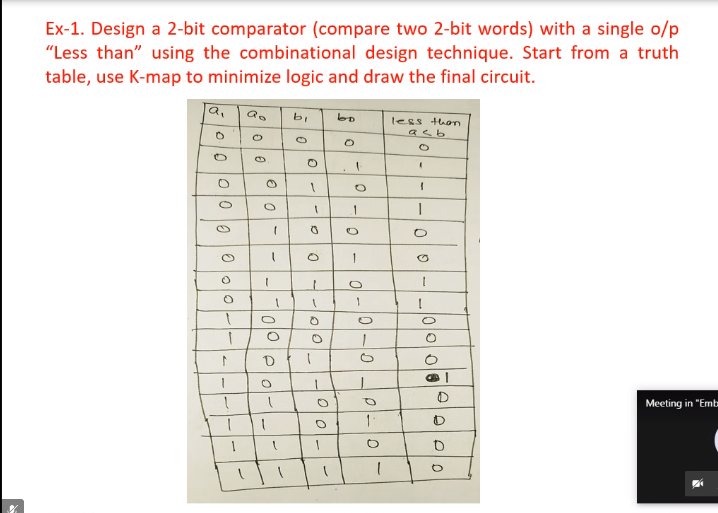 Ex-1. Design a 2-bit comparator (compare two 2-bit words) with a single o/p
“Less than” using the combinational design technique. Start from a truth
table, use K-map to minimize logic and draw the final circuit.
a₁ a₀ b₁ b₀ less than
a<b
0 0 0 0 0
0 0 0 1 1
0 0 1 0 1
0 0 1 1 1
0 1 0 0 0
0 1 0 1 0
0 1 1 0 1
0 1 1 1 1
1 0 0 0 0
1 0 0 1 0
1 0 1 0 0
1 0 1 1 1
1 1 0 0 0
1 1 0 1 0
1 1 1 0 0
1 1 1 1 0
Meeting in "Emb